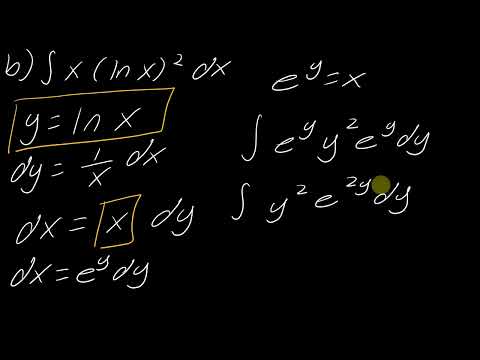 b) ∫ x (ln x)² dx
y = ln x
dy = 1/x dx
dx = x dy
dx = e^y dy
e^y = x
∫ e^y y² e^y dy
∫ y² e^{2y} dy